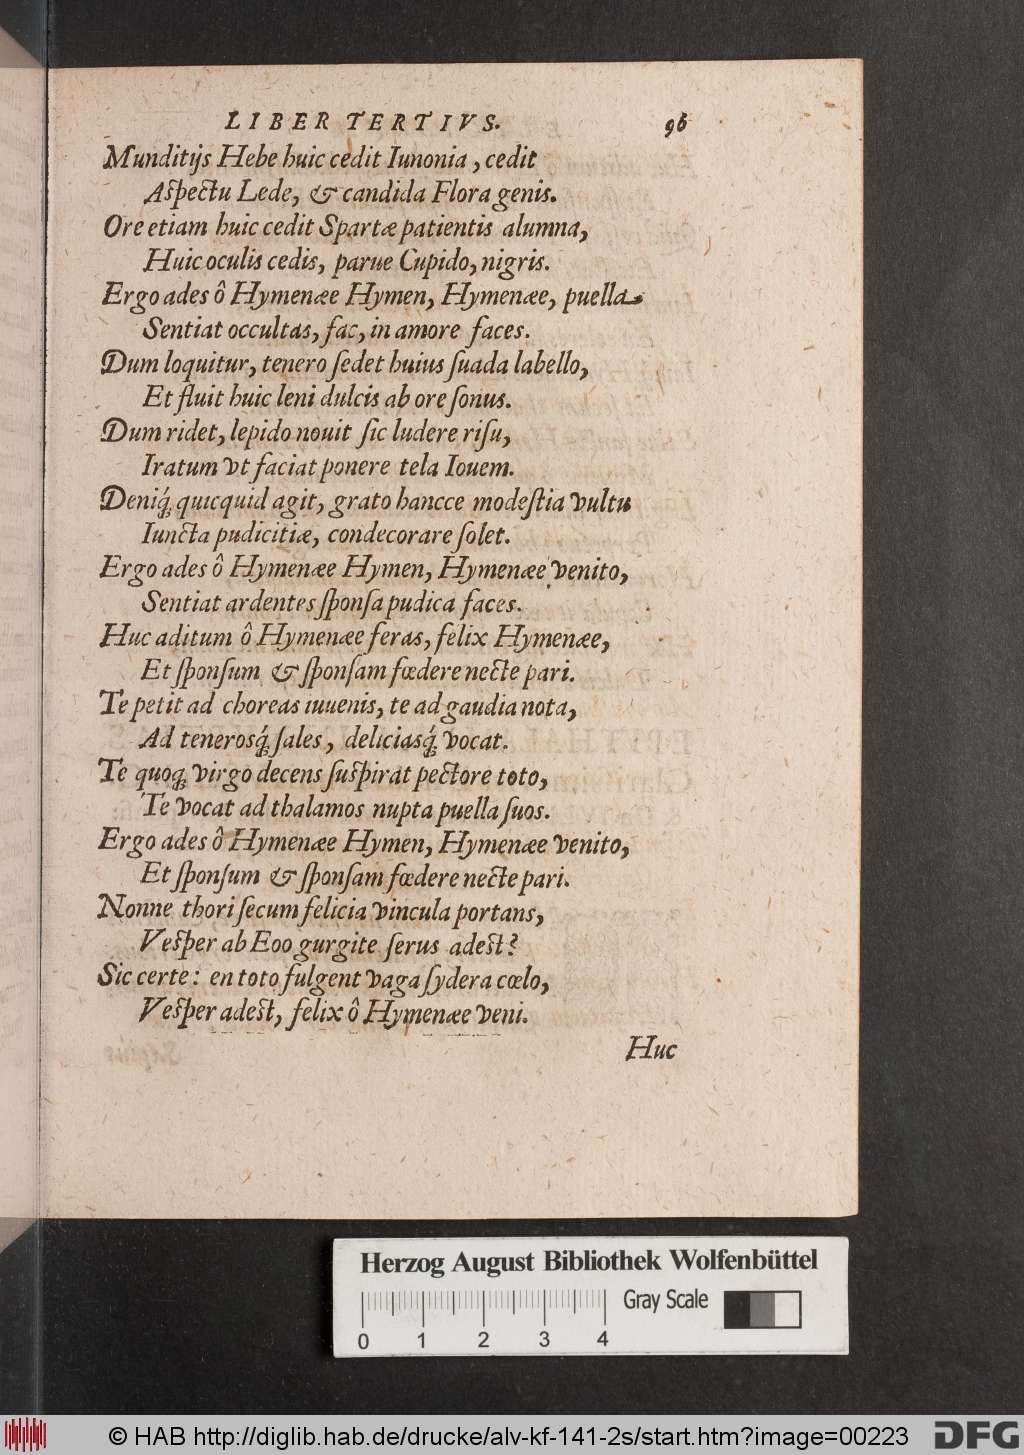 LIBER TERTIVS. 96
Munditijs Hebe huic cedit Iunonia, cedit
Aſpectu Lede, & candida Flora genis.
Ore etiam huic cedit Spartæ patientis alumna,
Huic oculis cedis, parue Cupido, nigris.
Ergo ades ô Hymenæe Hymen, Hymenæe, puella
Sentiat occultas, fac, in amore faces.
Dum loquitur, tenero ſedet huius ſuada labello,
Et fluit huic leni dulcis ab ore ſonus.
Dum ridet, lepido nouit ſic ludere riſu,
Iratum vt faciat ponere tela Iouem.
Deniq́; quicquid agit, grato hancce modeſtia vultu
Iuncta pudicitiæ, condecorare ſolet.
Ergo ades ô Hymenæe Hymen, Hymenæe venito,
Sentiat ardentes ſponſa pudica faces.
Huc aditum ô Hymenæe feras, felix Hymenæe,
Et ſponſum & ſponſam fœdere necte pari.
Te petit ad choreas iuuenis, te ad gaudia nota,
Ad tenerosq́; ſales, deliciasq́; vocat.
Te quoq; virgo decens ſuſpirat pectore toto,
Te vocat ad thalamos nupta puella ſuos.
Ergo ades ô Hymenæe Hymen, Hymenæe venito,
Et ſponſum & ſponſam fœdere necte pari.
Nonne thori ſecum felicia vincula portans,
Veſper ab Eoo gurgite ſerus adeſt?
Sic certe: en toto fulgent vaga ſydera cœlo,
Veſper adeſt, felix ô Hymenæe veni.
Huc
Herzog August Bibliothek Wolfenbüttel
Gray Scale
0 1 2 3 4
© HAB http://diglib.hab.de/drucke/alv-kf-141-2s/start.htm?image=00223
DFG